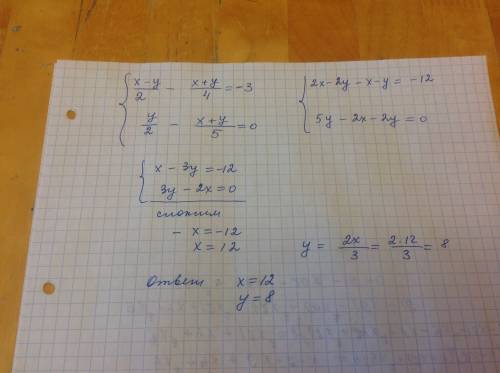 { (x-y)/2 - (x+y)/4 = -3
y/2 - (x+y)/5 = 0
{ 2x-2y-x-y = -12
5y-2x-2y = 0
{ x - 3y = -12
3y - 2x = 0
сложим
- x = -12
x = 12
y = 2x/3 = 2·12/3 = 8
Ответ x = 12
y = 8